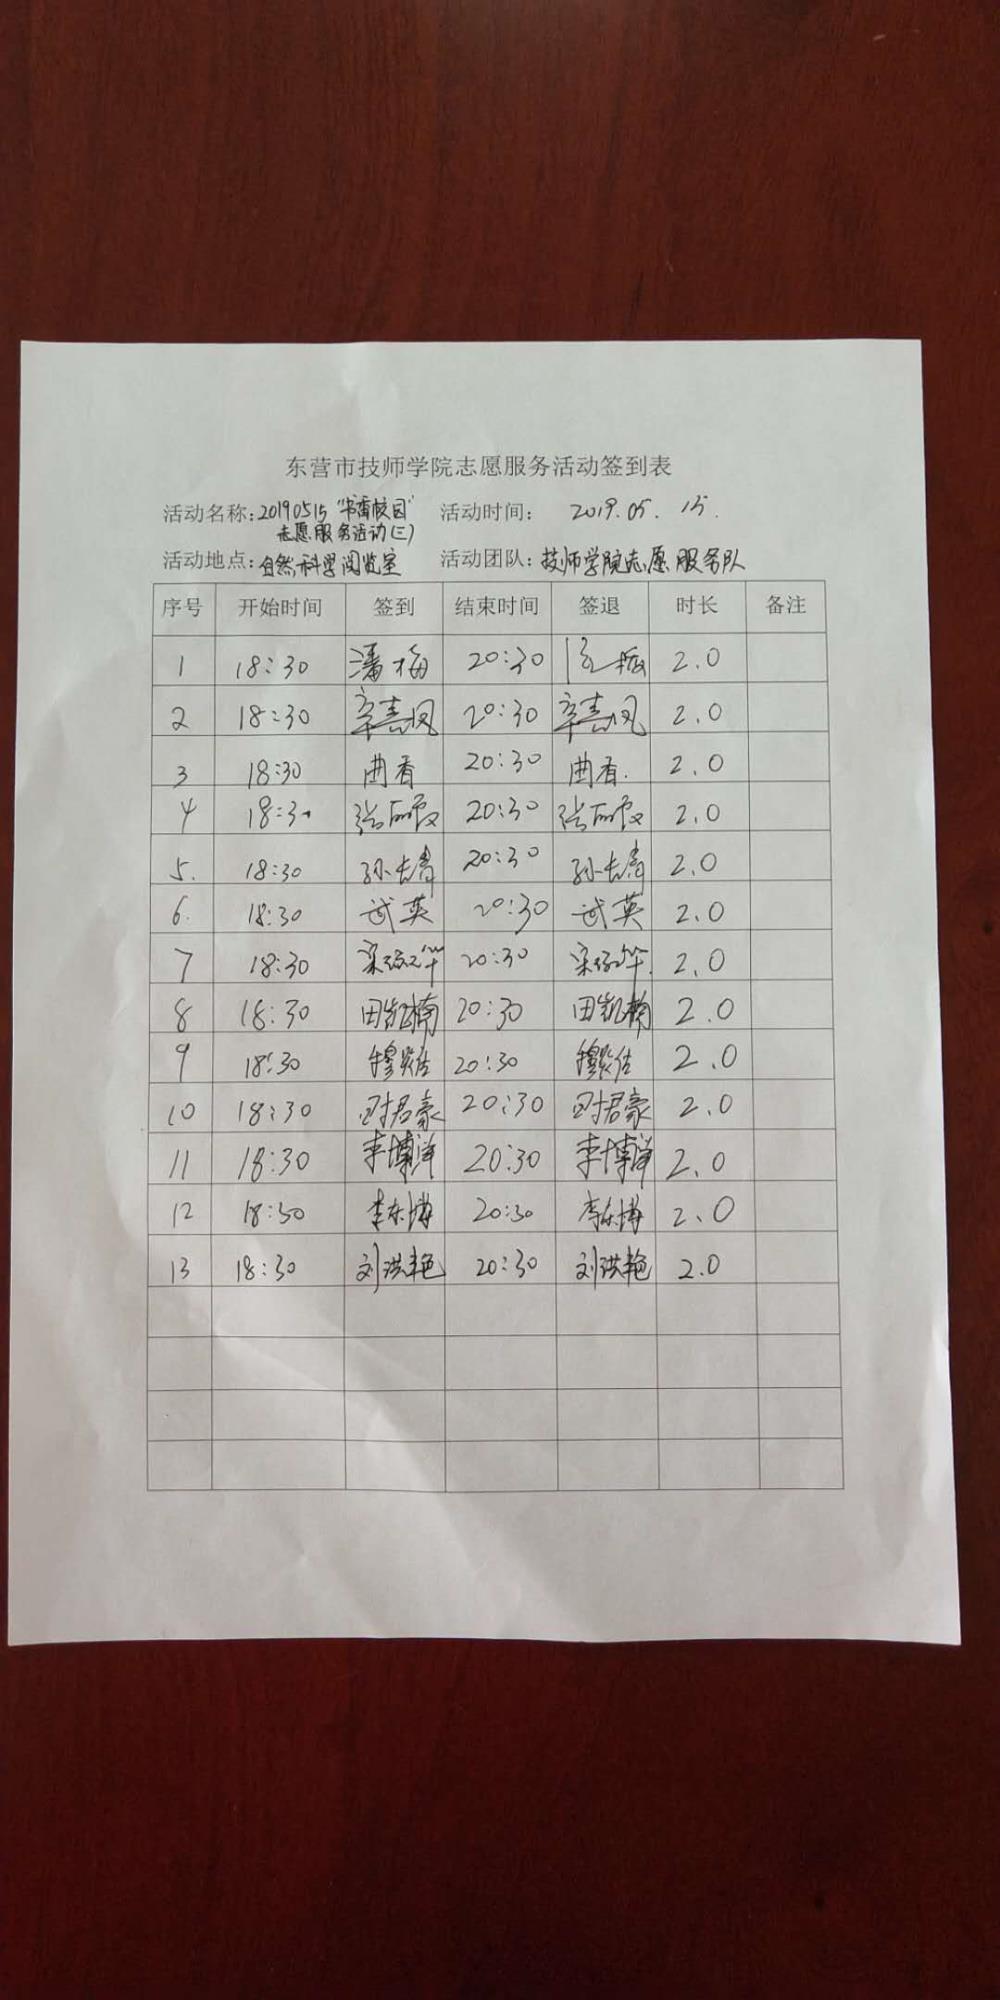 东营市技师学院志愿服务活动签到表
活动名称:20190515"书香校园" 活动时间: 2019.05.15.
志愿服务活动(三)
活动地点:自然科学阅览室 活动团队:技师学院志愿服务队
序号 开始时间 签到 结束时间 签退 时长 备注
1 18:30 潘梅 20:30 2.0
2 18:30 辛志凤 20:30 辛志凤 2.0
3 18:30 曲香 20:30 曲香. 2.0
4 18:30 张丽霞 20:30 张丽霞 2.0
5. 18:30 孙长青 20:30 孙长青 2.0
6. 18:30 武英 20:30 武英 2.0
7 18:30 20:30 2.0
8 18:30 田凯楠 20:30 田凯楠 2.0
9 18:30 20:30 2.0
10 18:30 时君豪 20:30 时君豪 2.0
11 18:30 李博洋 20:30 李博洋 2.0
12 18:30 李东博 20:30 李东博 2.0
13 18:30 刘洪艳 20:30 刘洪艳 2.0